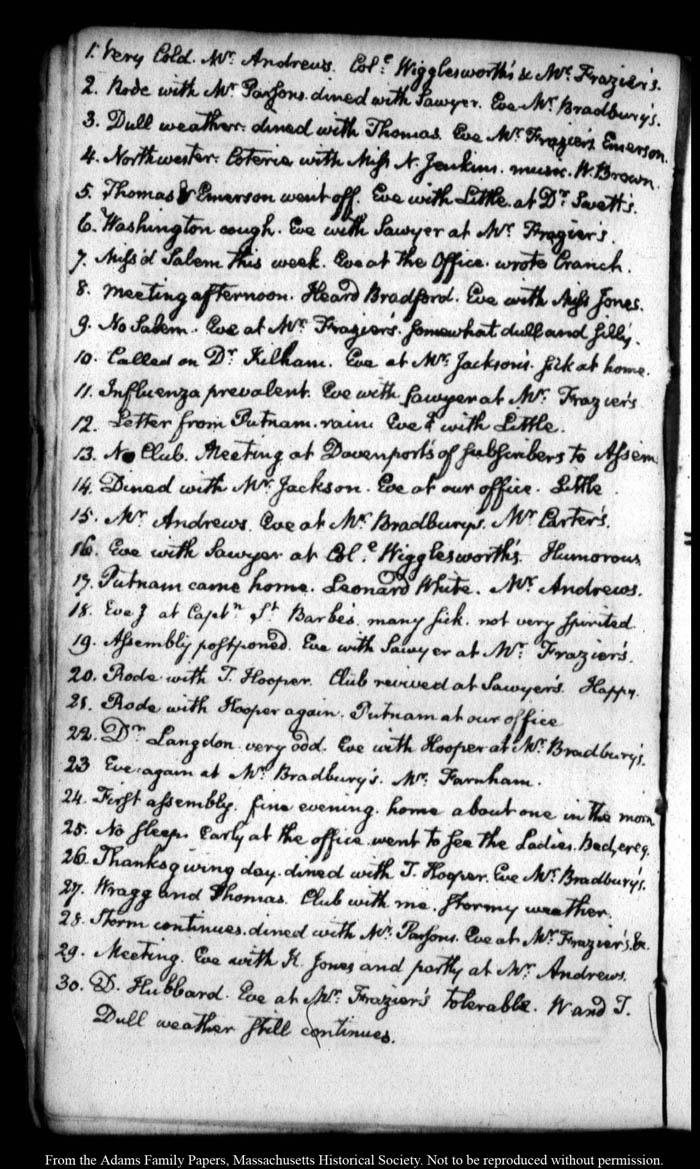 1. Very Cold. Mr. Andrews. Col.e Wigglesworth's & Mr. Frazier's.
2. Rode with Mr Parsons. dined with Sawyer. Eve Mr. Bradbury's.
3. Dull weather. dined with Thomas. Eve Mr. Frazier's. Emerson.
4. Northwester. Coterie with Miss N. Jenkins. music. W. Brown.
5. Thomas & Emerson went off. Eve with Little. at Dr. Swett's.
6. Washington cough. Eve with Sawyer at Mr. Frazier's.
7. Miss'd Salem this week. Eve at the Office. wrote Cranch.
8. Meeting afternoon. Heard Bradford. Eve with Miss Jones.
9. No Salem. Eve at Mr. Frazier's. somewhat dull and silly.
10. Called on Dr. Kilham. Eve at Mr. Jackson's. sick at home.
11. Influenza prevalent. Eve with Sawyer at Mr. Frazier's
12. Letter from Putnam. rain. Eve with Little.
13. No Club. Meeting at Davenport's of subscribers to Assem
14. Dined with Mr. Jackson. Eve at our office. Little
15. Mr. Andrews. Eve at Mr. Bradbury's. Mr Carter's.
16. Eve with Sawyer at Col.e Wigglesworth's. Humorous
17. Putnam came home. Leonard White. Mr. Andrews.
18. Eve at Captn. St Barbe's. many sick. not very spirited.
19. Assembly postponed. Eve with Sawyer at Mr. Frazier's.
20. Rode with T. Hooper. Club revived at Sawyer's. Happy.
21. Rode with Hooper again. Putnam at our office
22. Dr. Langdon. very odd. Eve with Hooper at Mr. Bradbury's.
23 Eve again at Mr. Bradbury's. Mr. Farnham.
24. First assembly. fine evening. home about one in the morn
25. No sleep. Early at the office. went to see the Ladies.
26. Thanksgiving day. dined with T. Hooper. Eve Mr. Bradbury's.
27. Wragg and Thomas. Club with me. stormy weather.
28. Storm continues. dined with Mr. Parsons. Eve at Mr. Frazier's. &c.
29. Meeting. Eve with H. Jones and partly at Mr. Andrews.
30. D. Hubbard. Eve at Mr. Frazier's tolerable. W and T.
Dull weather still continues.
From the Adams Family Papers, Massachusetts Historical Society. Not to be reproduced without permission.